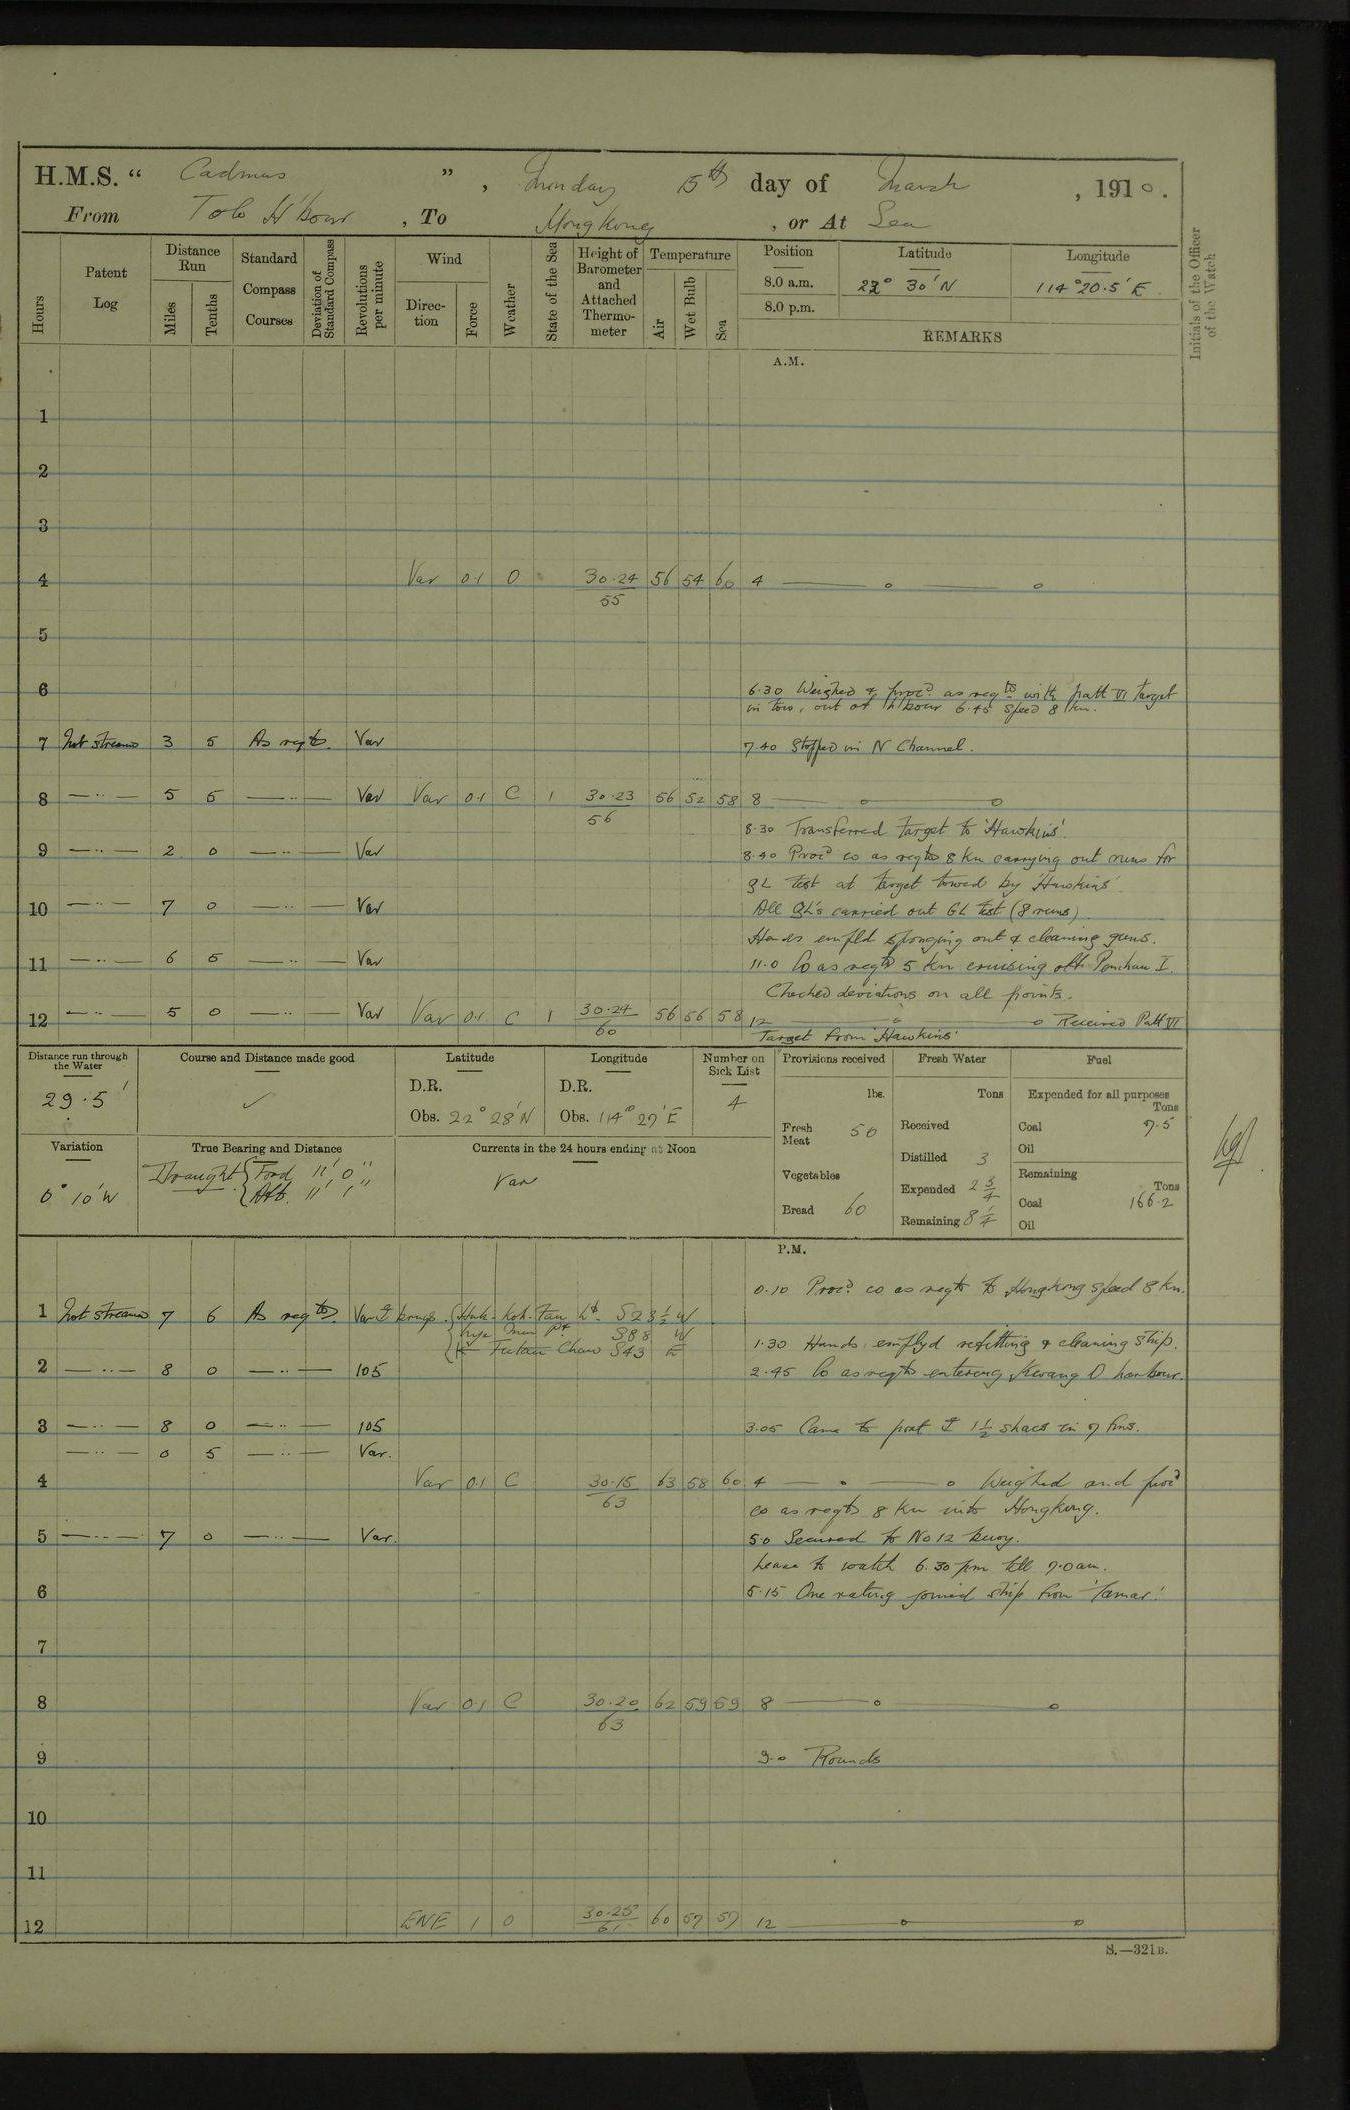 H.M.S. “ Cadmus ” , Monday 15th day of March , 1910 .
From Tolo H'bour , To Hongkong , or At Sea
Hours
Patent Log
Distance Run
Miles
Tenths
Standard Compass Courses
Deviation of Standard Compass
Revolutions per minute
Wind
Direction
Force
Weather
State of the Sea
Height of Barometer and Attached Thermometer
Temperature
Air
Wet Bulb
Sea
Position
Latitude
Longitude
8.0 a.m. 22° 30' N 114° 20.5' E
8.0 p.m.
REMARKS
Initials of the Officer of the Watch
A.M.
1
2
3
4 Var 0.1 O 30.24 56 54 60 4
55
5
6 6.30 Weighed & procd. as reqte with patt VI target
in tow, out of h'bour 6.45 speed 8 kn.
7 Not streamed 3 5 As reqte. Var 7.40 Stopped in N Channel.
8 — ·· — 5 5 — ·· — Var Var 0.1 C 1 30.23 56 52 58 8
56
8.30 Transferred target to 'Hawkins'.
9 — ·· — 2 0 — ·· — Var 8.40 Procd co as reqte 8 kn carrying out runs for
GL test at target towed by 'Hawkins'.
10 — ·· — 7 0 — ·· — Var All GL's carried out GL test (8 runs).
Hands empld sponging out & cleaning guns.
11 — ·· — 6 5 — ·· — Var 11.0 Co as reqte 5 kn cruising off I.
Checked deviations on all points.
12 — ·· — 5 0 — ·· — Var Var 0.1 C 1 30.24 56 56 58 12 Received Patt VI
60
Target from 'Hawkins'.
Distance run through the Water
29.5'
Course and Distance made good
✓
Latitude
D.R.
Obs. 22° 28' N
Longitude
D.R.
Obs. 114° 27' E
Number on Sick List
4
Provisions received
lbs.
Fresh Meat 50
Vegetables
Bread 60
Fresh Water
Tons
Received
Distilled 3
Expended 2 3/4
Remaining 8 1/4
Fuel
Expended for all purposes
Tons
Coal 7.5
Oil
Remaining
Tons
Coal 166.2
Oil
Variation
0° 10' W
True Bearing and Distance
Draught { Ford 11' 0"
Aft. 11' 1"
Currents in the 24 hours ending at Noon
Var
P.M.
0.10 Procd. co as reqte to Hongkong speed 8 kn.
1 Not streamed 7 6 As reqte. Var
S 23 1/2 W
S 88 W
Chau S 43 E
1.30 Hands employd refitting & cleaning ship.
2 — ·· — 8 0 — ·· — 105 2.45 Co as reqte entering Kwang O harbour.
3 — ·· — 8 0 — ·· — 105 3.05 Came to port 1 1/2 shacs in 7 fms.
— ·· — 0 5 — ·· — Var.
4 Var 0.1 C 30.15 63 58 60 4 Weighed and procd
63
co as reqte 8 kn into Hongkong.
5 — ·· — 7 0 — ·· — Var. 5.0 Secured to No 12 buoy.
Leave to watch 6.30 pm till 7.0 am.
6 5.15 One rating joined ship from 'Tamar'.
7
8 Var 0.1 C 30.20 62 59 59 8
63
9 9.0 Rounds
10
11
12 ENE 1 O 30.25 60 57 57 12
61
S.—321B.